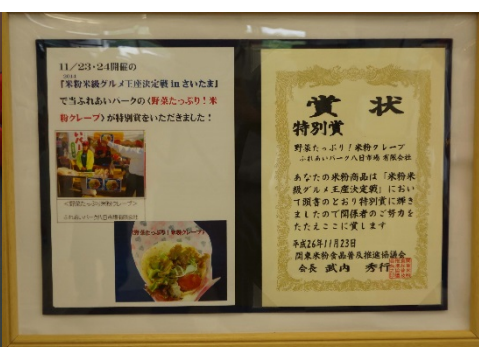 11/23・24開催の
2014
『米粉米級グルメ王座決定戦 in さいたま』
で当ふれあいパークの〈野菜たっぷり！米
粉クレープ〉が特別賞をいただきました！
<野菜たっぷり米粉クレープ>
ふれあいパーク八日市場有限会社
<野菜たっぷり！米粉クレープ>
賞状
特別賞
野菜たっぷり！米粉クレープ
ふれあいパーク八日市場 有限会社
あなたの米粉商品は「米粉米
級グルメ王座決定戦」におい
て頭書のとおり特別賞に輝き
ましたので関係者のご努力を
たたえここに賞します
平成26年11月23日
関東米粉食品普及推進協議会
会長 武内 秀行